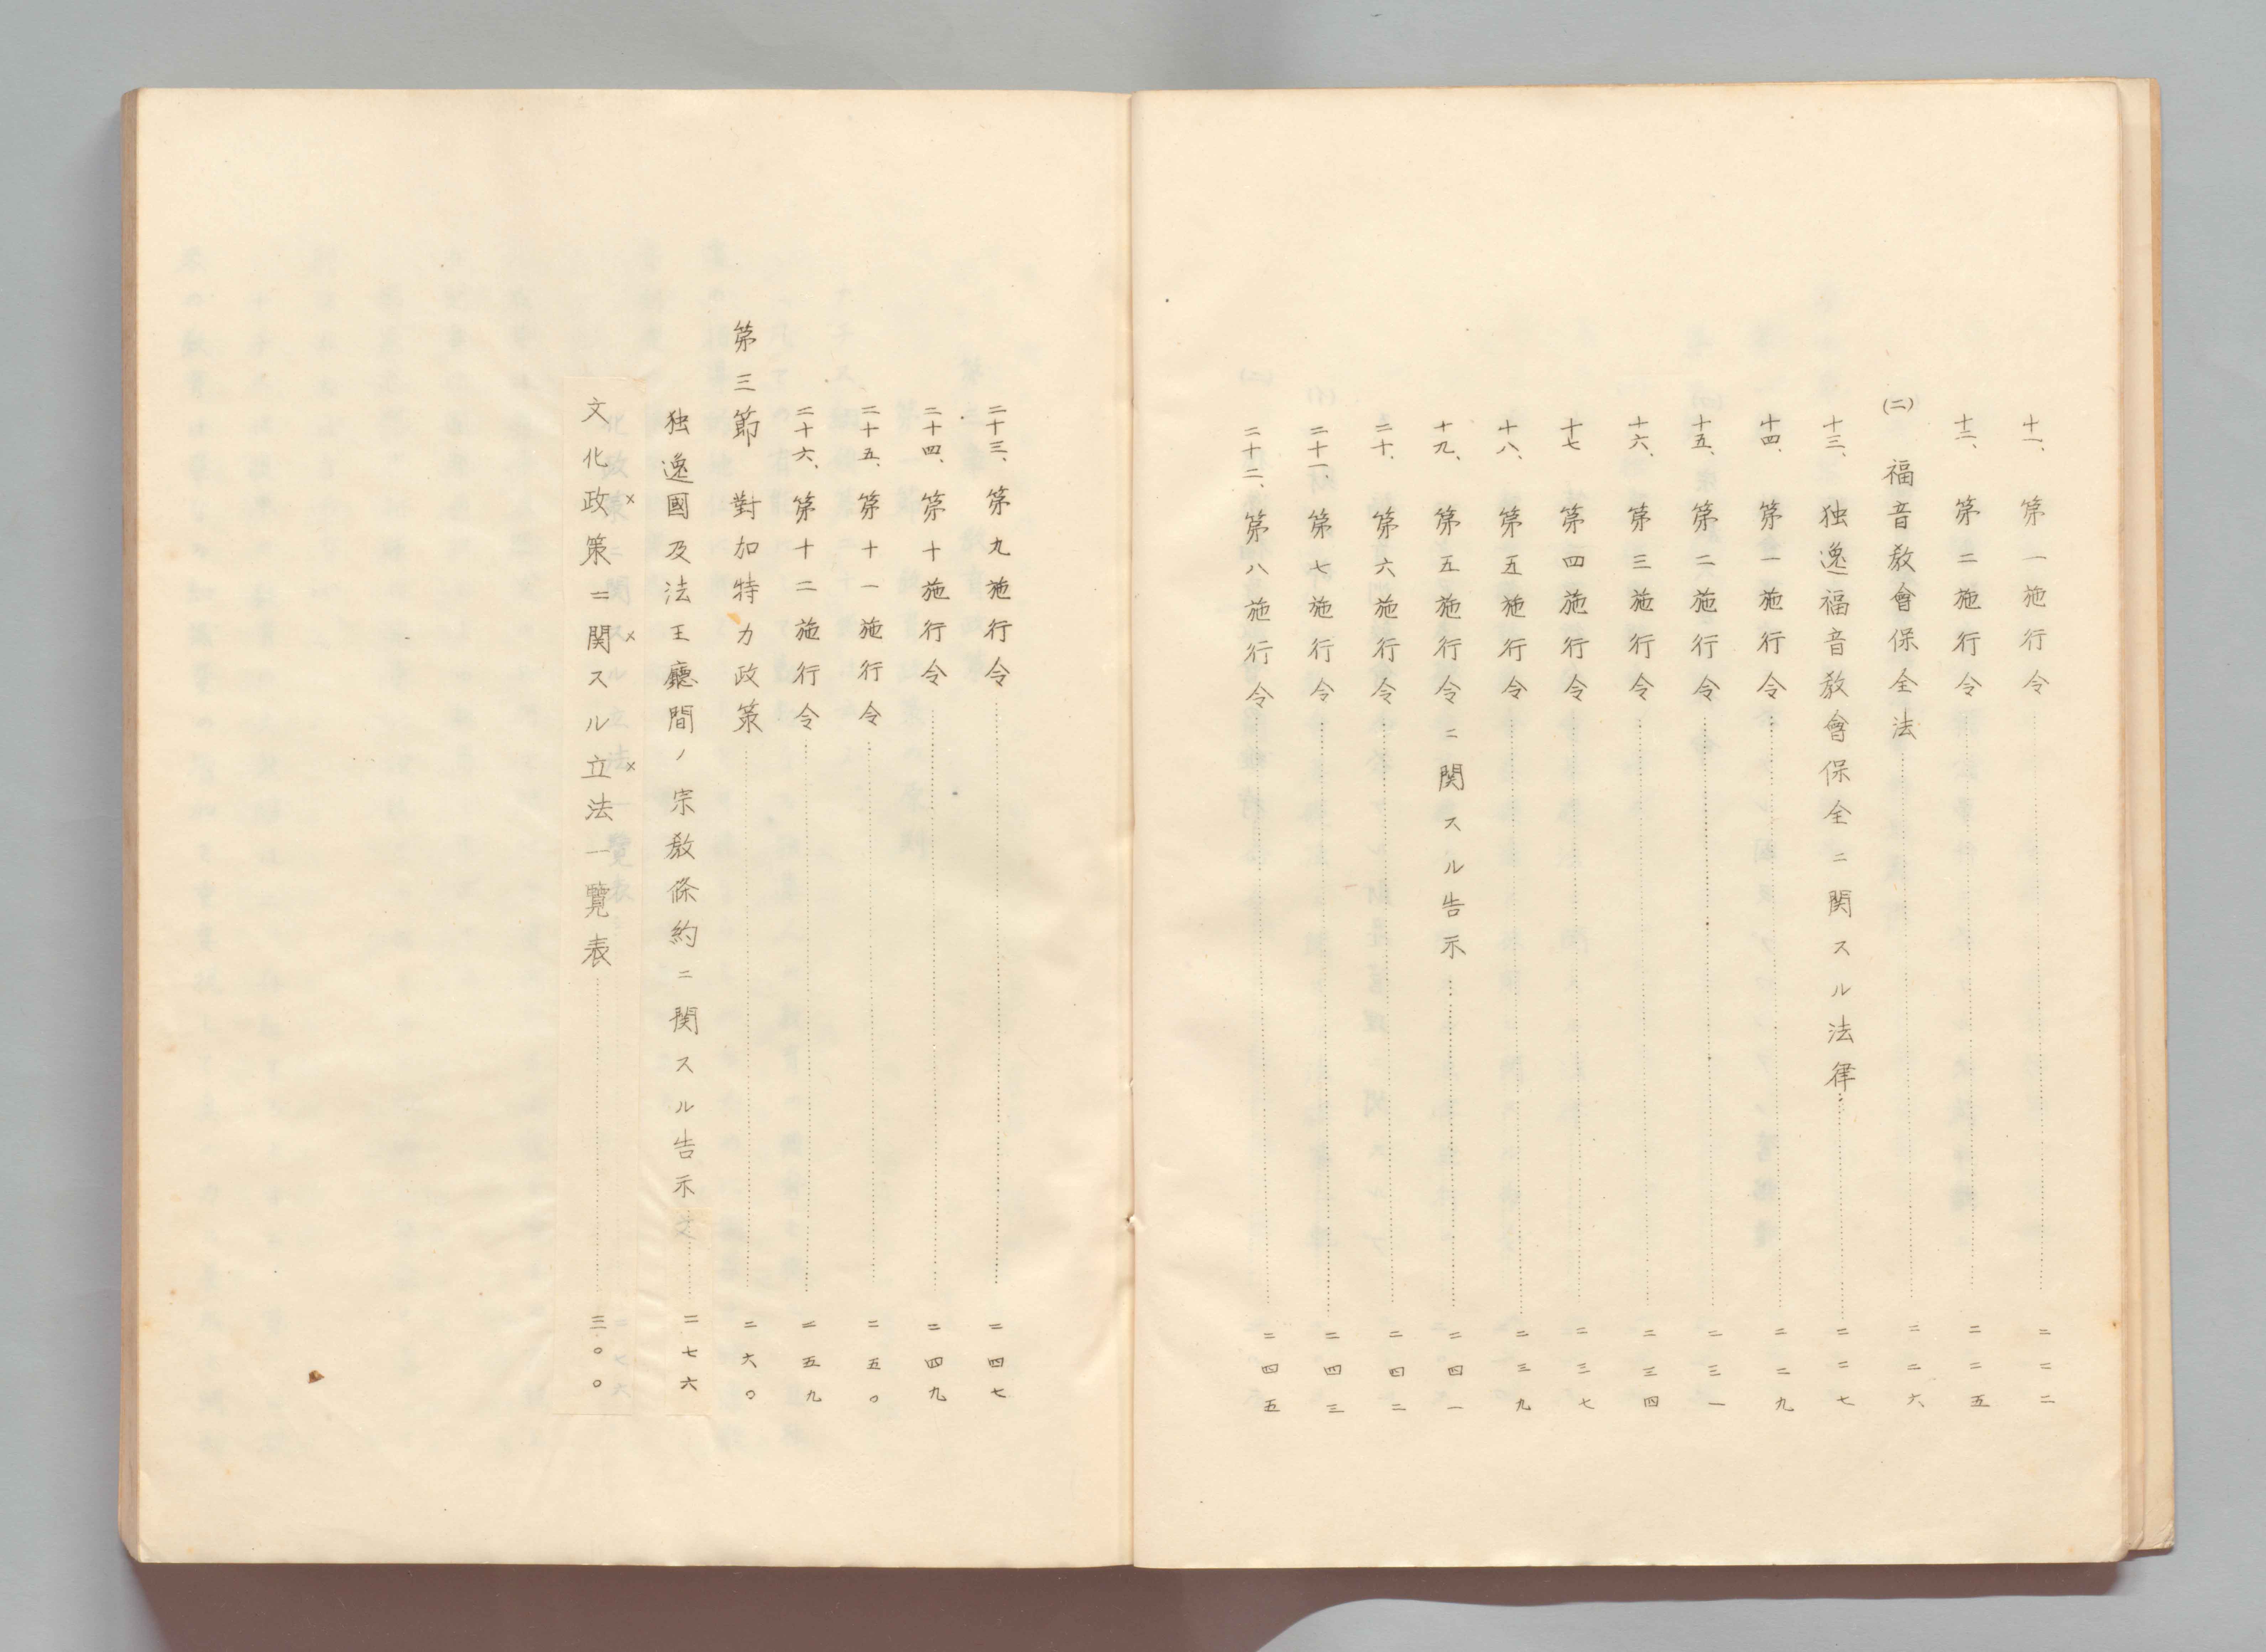 十一、第一施行令……二二二
十二、第二施行令……二二五
(二) 福音教會保全法……二二六
十三、独逸福音教會保全ニ関スル法律……二二七
十四、第一施行令……二二九
十五、第二施行令……二三一
十六、第三施行令……二三四
十七 第四施行令……二三七
十八、第五施行令……二三九
十九、第五施行令ニ関スル告示……二四一
二十、第六施行令……二四二
二十一、第七施行令……二四三
二十二、第八施行令……二四五
二十三、第九施行令……二四七
二十四、第十施行令……二四九
二十五、第十一施行令……二五〇
二十六、第十二施行令……二五九
第三節 對加特力政策……二六〇
独逸國及法王廳間ノ宗教條約ニ関スル告示文……二七六
文化政策ニ関スル立法一覽表……三〇〇